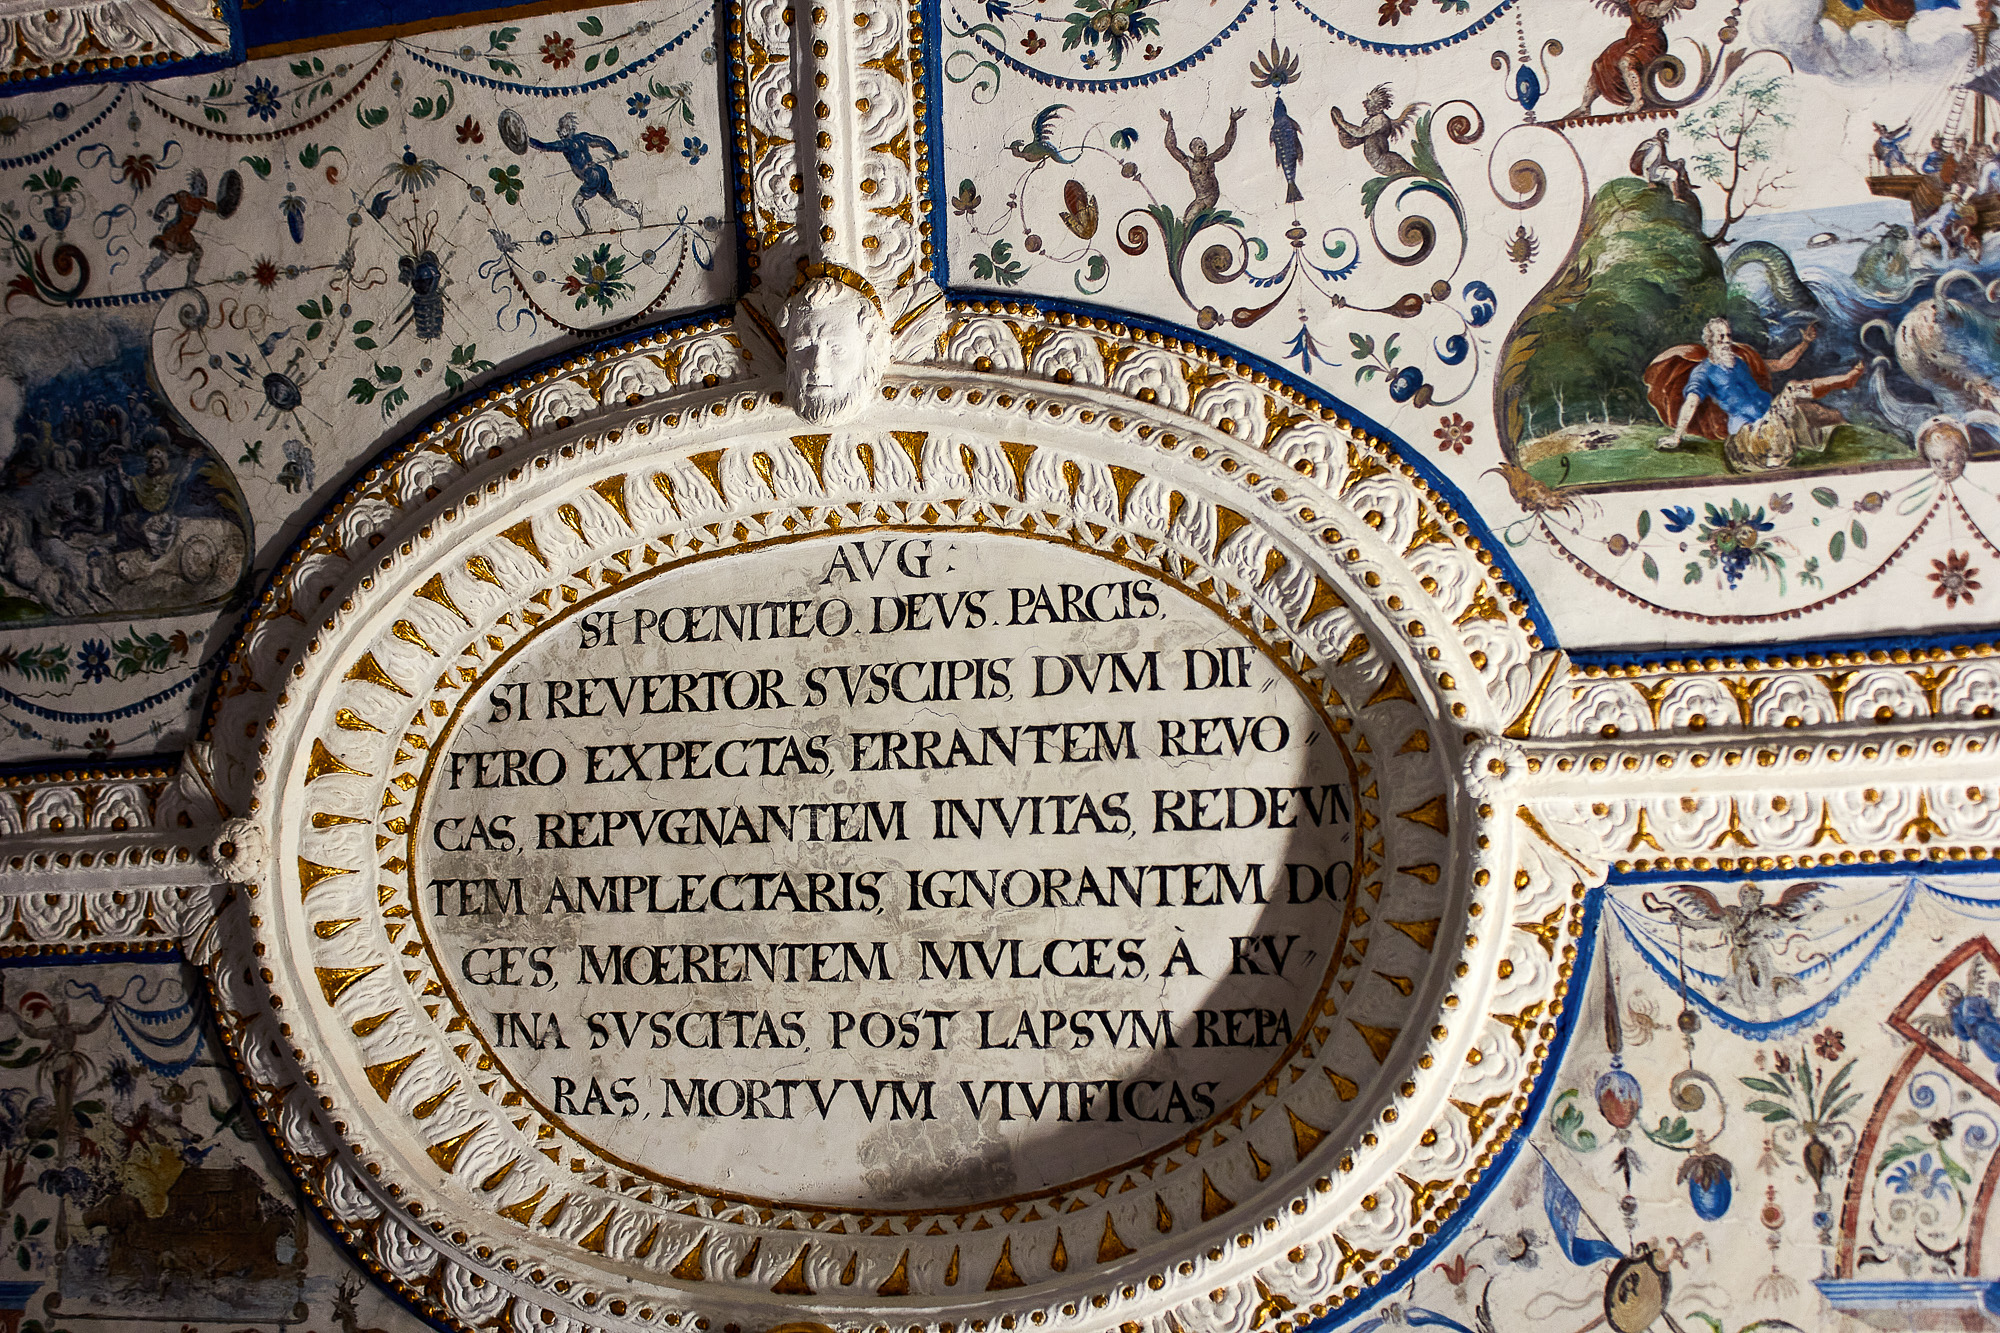 AVG:
SI POENITEO. DEVS. PARCIS,
SI REVERTOR SVSCIPIS, DVM DIF〃
FERO EXPECTAS, ERRANTEM REVO〃
CAS, REPVGNANTEM INVITAS, REDEVN〃
TEM AMPLECTARIS, IGNORANTEM DO
CES, MŒRENTEM MVLCES, À RV〃
INA SVSCITAS, POST LAPSVM REPA
RAS, MORTVVM VIVIFICAS
9